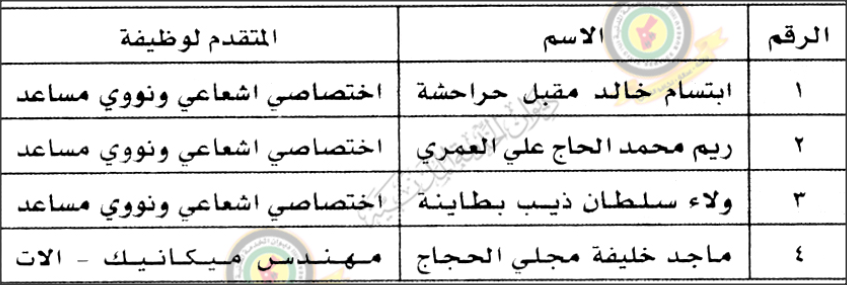 الرقم الاسم المتقدم لوظيفة
١ ابتسام خالد مقبل حراحشة اختصاصي اشعاعي ونووي مساعد
٢ ريم محمد الحاج علي العمري اختصاصي اشعاعي ونووي مساعد
٣ ولاء سلطان ذيب بطاينة اختصاصي اشعاعي ونووي مساعد
٤ ماجد خليفة مجلي الحجاج مهندس ميكانيك - الات
ديوان الخدمة المدنية